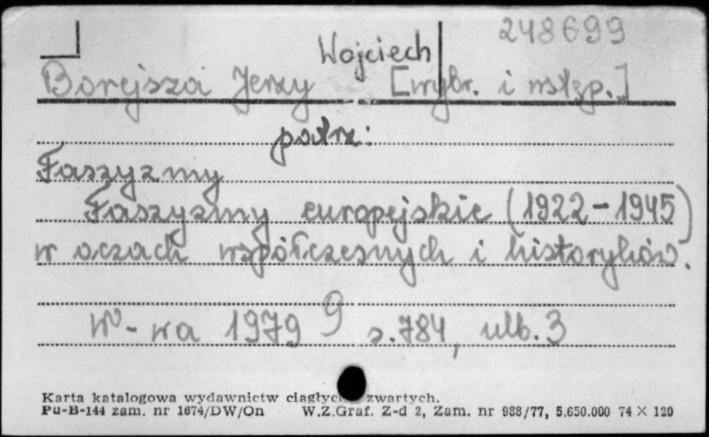 248699
Wojciech
Borejsza Jerzy [wybr. i wstęp.]
patrz:
Faszyzmy
Faszyzmy europejskie (1922-1945)
w oczach współczesnych i historyków.
W-wa 1979 9 s.784, ulb.3
Karta katalogowa wydawnictw ciągłych zwartych.
Pu-B-144 zam. nr 1674/DW/On W.Z.Graf. Z-d 2, Zam. nr 988/77, 5.650.000 74 × 120